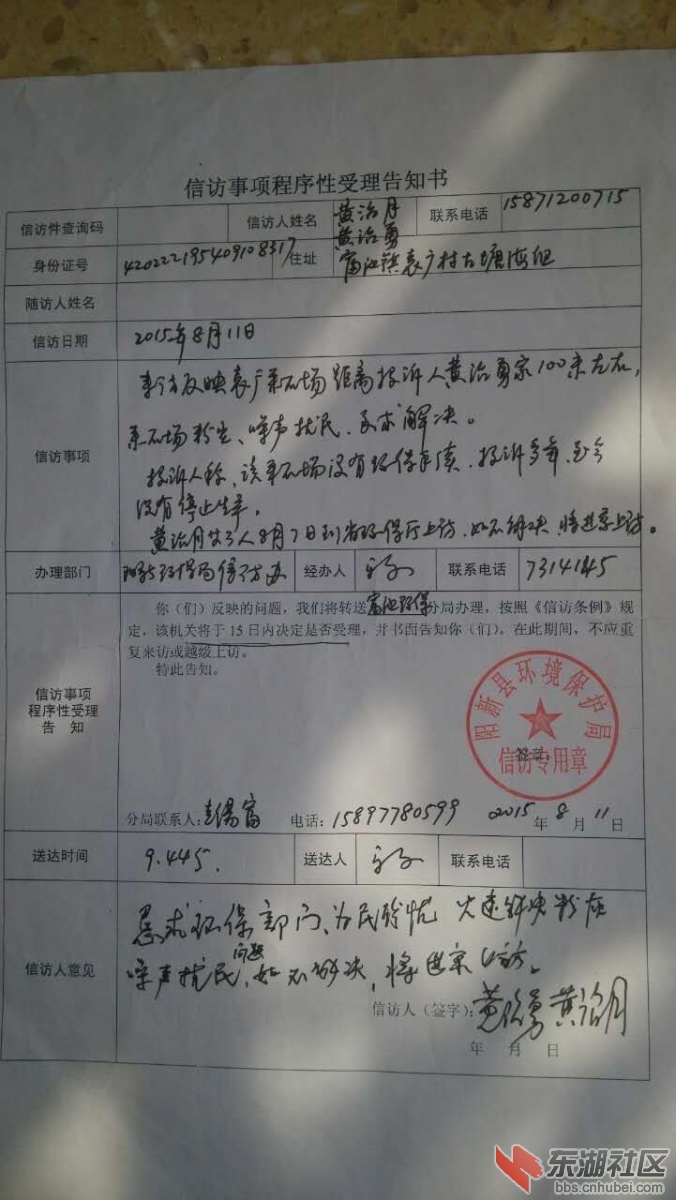 信访事项程序性受理告知书
信访件查询码 信访人姓名 黄治月 黄治勇 联系电话 15871200715
身份证号 420222195409108317 住址 富池镇袁广村古塘海组
随访人姓名
信访日期 2015年8月11日
信访事项
来访反映袁广采石场距离投诉人黄治勇家100米左右,
采石场粉尘、噪声扰民,要求解决。
投诉人称,该采石场没有环保手续,投诉多年,至今
没有停止生产。
黄治月等人8月7日到省环保厅上访,如不解决,将进京上访。
办理部门 阳新环保局信访办 经办人 联系电话 7314145
信访事项
程序性受理
告 知
你(们)反映的问题,我们将转送富池环保分局办理,按照《信访条例》规
定,该机关将于15日内决定是否受理,并书面告知你(们)。在此期间,不应重
复来访或越级上访。
特此告知。
阳新县环境保护局
签章:
信访专用章
分局联系人: 电话:15897780599 2015年8月11日
送达时间 9.445. 送达人 联系电话
信访人意见
恳求环保部门、为民分忧 火速解决粉灰
噪声扰民问题,如不解决,将进京上访。
信访人(签字):黄治勇 黄治月
年 月 日
东湖社区
bbs.cnhubei.com